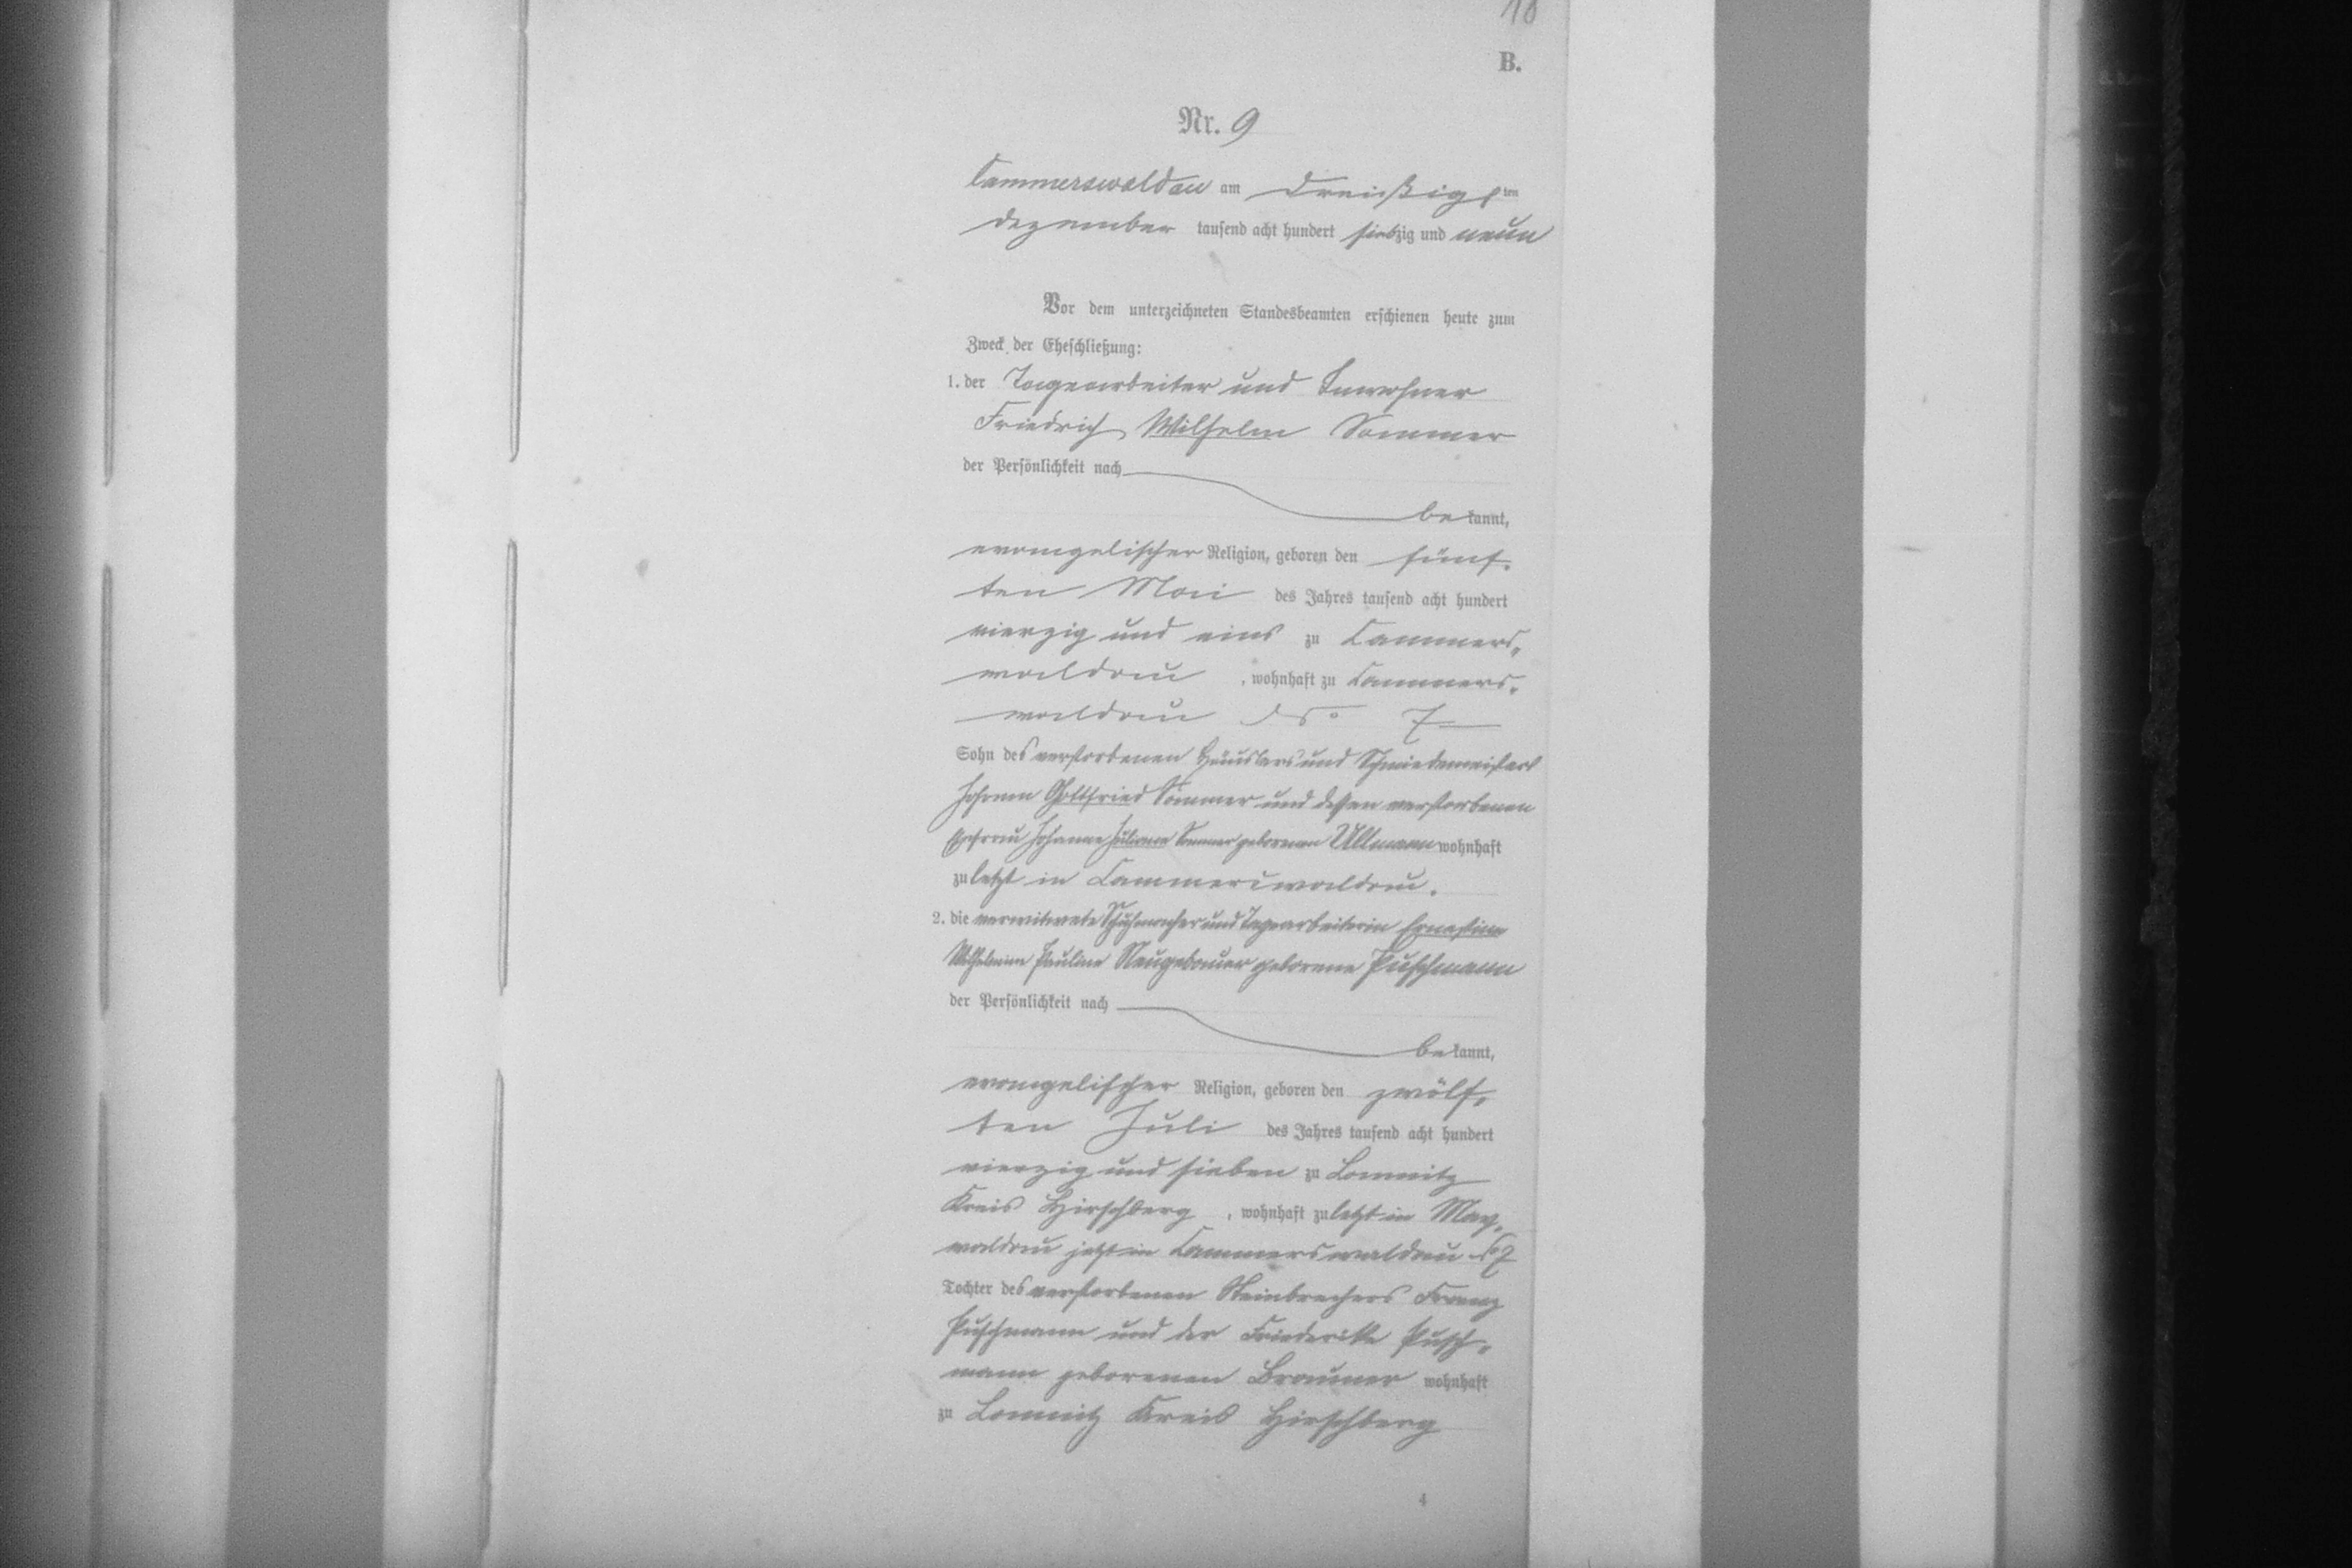 18
B.
Nr. 9
Cammerswaldau am Dreißigsten
Dezember tausend acht hundert siebzig und neun
Vor dem unterzeichneten Standesbeamten erschienen heute zum
Zweck der Eheschließung:
1. der Tagearbeiter und Inwohner
Friedrich Wilhelm Sommer
der Persönlichkeit nach
bekannt,
evangelischer Religion, geboren den fünf-
ten Mai des Jahres tausend acht hundert
vierzig und eins zu Cammers-
waldau, wohnhaft zu Cammers-
waldau No 7
Sohn des verstorbenen Häuslers und Schmiedemeisters
Johann Gottfried Sommer und dessen verstorbenen
Ehefrau Johanne Juliane Sommer geborenen Ullmann wohnhaft
zuletzt in Cammerswaldau.
2. die verwitwete Schuhmacher und Tagearbeiterin Ernestine
Wilhelmine Pauline Neugebauer geborene Puschmann
der Persönlichkeit nach
bekannt,
evangelischer Religion, geboren den zwölf-
ten Juli des Jahres tausend acht hundert
vierzig und sieben zu Lomnitz
Kreis Hirschberg, wohnhaft zuletzt in May-
waldau jetzt in Cammerswaldau No 7
Tochter des verstorbenen Steinbrechers Franz
Puschmann und der Friederike Pusch-
mann geborenen Brauner wohnhaft
zu Lomnitz Kreis Hirschberg
4